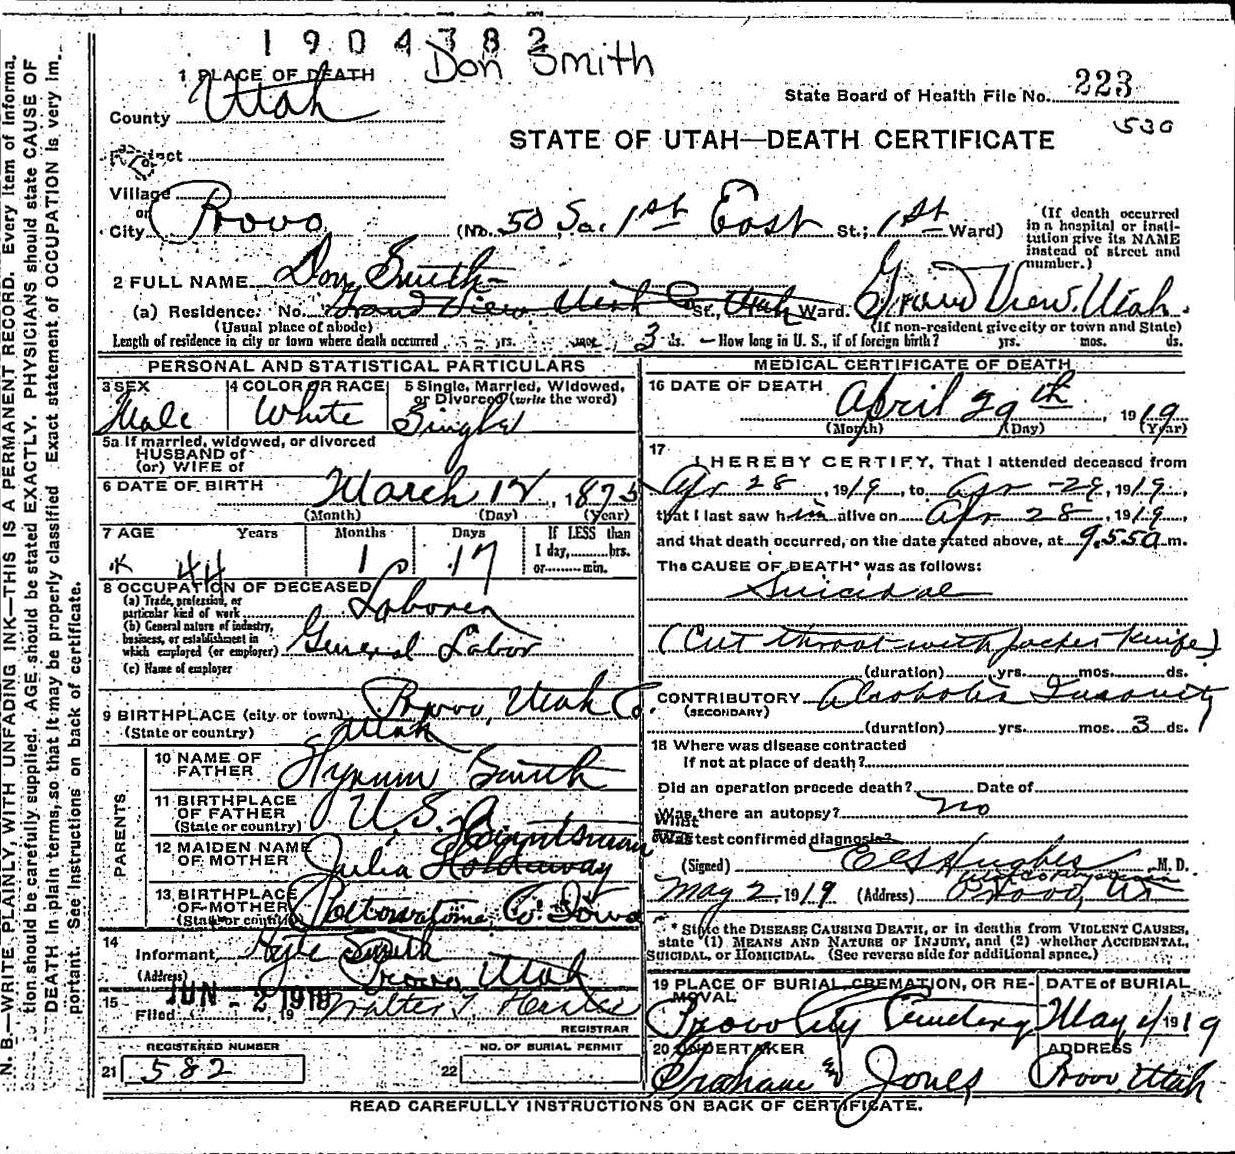 1904382
Don Smith
1 PLACE OF DEATH
County Utah
State Board of Health File No. 223
530
STATE OF UTAH—DEATH CERTIFICATE
Village
or
City Provo (No. 50 So. 1st East St.; 1st Ward)
(If death occurred
in a hospital or insti-
tution give its NAME
instead of street and
number.)
2 FULL NAME Don Smith
(a) Residence. No. Grand View Utah Co St., Utah Ward. Grand View, Utah.
(Usual place of abode) (If non-resident give city or town and State)
Length of residence in city or town where death occurred yrs. mos. 3 ds. — How long in U. S., if of foreign birth? yrs. mos. ds.
PERSONAL AND STATISTICAL PARTICULARS
3 SEX
Male
4 COLOR OR RACE
White
5 Single, Married, Widowed,
or Divorced (write the word)
Single
5a If married, widowed, or divorced
HUSBAND of
(or) WIFE of
6 DATE OF BIRTH March 12, 1875
(Month) (Day) (Year)
7 AGE Years Months Days If LESS than
1 day, hrs.
or min.
44 1 17
8 OCCUPATION OF DECEASED
(a) Trade, profession, or
particular kind of work Laborer
(b) General nature of industry,
business, or establishment in
which employed (or employer) General Labor
(c) Name of employer
9 BIRTHPLACE (city or town) Provo, Utah Co.
(State or country) Utah
PARENTS
10 NAME OF
FATHER Hyrum Smith
11 BIRTHPLACE
OF FATHER
(State or country) U. S. A
12 MAIDEN NAME
OF MOTHER Julia Holdaway
13 BIRTHPLACE
OF MOTHER
(State or country) Pottawatomie Co. Iowa
14
Informant Hyle Smith
(Address) Provo Utah
15
Filed JUN - 2 1919, 19 Walter T.
REGISTRAR
REGISTERED NUMBER
21 582
NO. OF BURIAL PERMIT
22
MEDICAL CERTIFICATE OF DEATH
16 DATE OF DEATH
April 29th, 1919
(Month) (Day) (Year)
17
I HEREBY CERTIFY, That I attended deceased from
Apr 28, 1919, to Apr - 29, 1919,
that I last saw him alive on Apr 28, 1919,
and that death occurred, on the date stated above, at 9.550 m.
The CAUSE OF DEATH* was as follows:
Suicidal
(Cut throat with pocket knife)
(duration) yrs. mos. ds.
CONTRIBUTORY Alcoholic Insanity
(SECONDARY)
(duration) yrs. mos. 3 ds.
18 Where was disease contracted
If not at place of death?
Did an operation precede death? Date of
Was there an autopsy? No
What test confirmed diagnosis?
(Signed) Hughes M. D.
May 2, 1919 (Address) Provo, Ut
* State the DISEASE CAUSING DEATH, or in deaths from VIOLENT CAUSES,
state (1) MEANS AND NATURE OF INJURY, and (2) whether ACCIDENTAL,
SUICIDAL, or HOMICIDAL. (See reverse side for additional space.)
19 PLACE OF BURIAL, CREMATION, OR RE-
MOVAL
Provo City Cemetery
DATE of BURIAL
May 1919
20 UNDERTAKER
Graham & Jones
ADDRESS
Provo, Utah
READ CAREFULLY INSTRUCTIONS ON BACK OF CERTIFICATE.
N. B.—WRITE PLAINLY, WITH UNFADING INK—THIS IS A PERMANENT RECORD. Every item of informa-
tion should be carefully supplied. AGE should be stated EXACTLY. PHYSICIANS should state CAUSE OF
DEATH in plain terms, so that it may be properly classified. Exact statement of OCCUPATION is very im-
portant. See instructions on back of certificate.